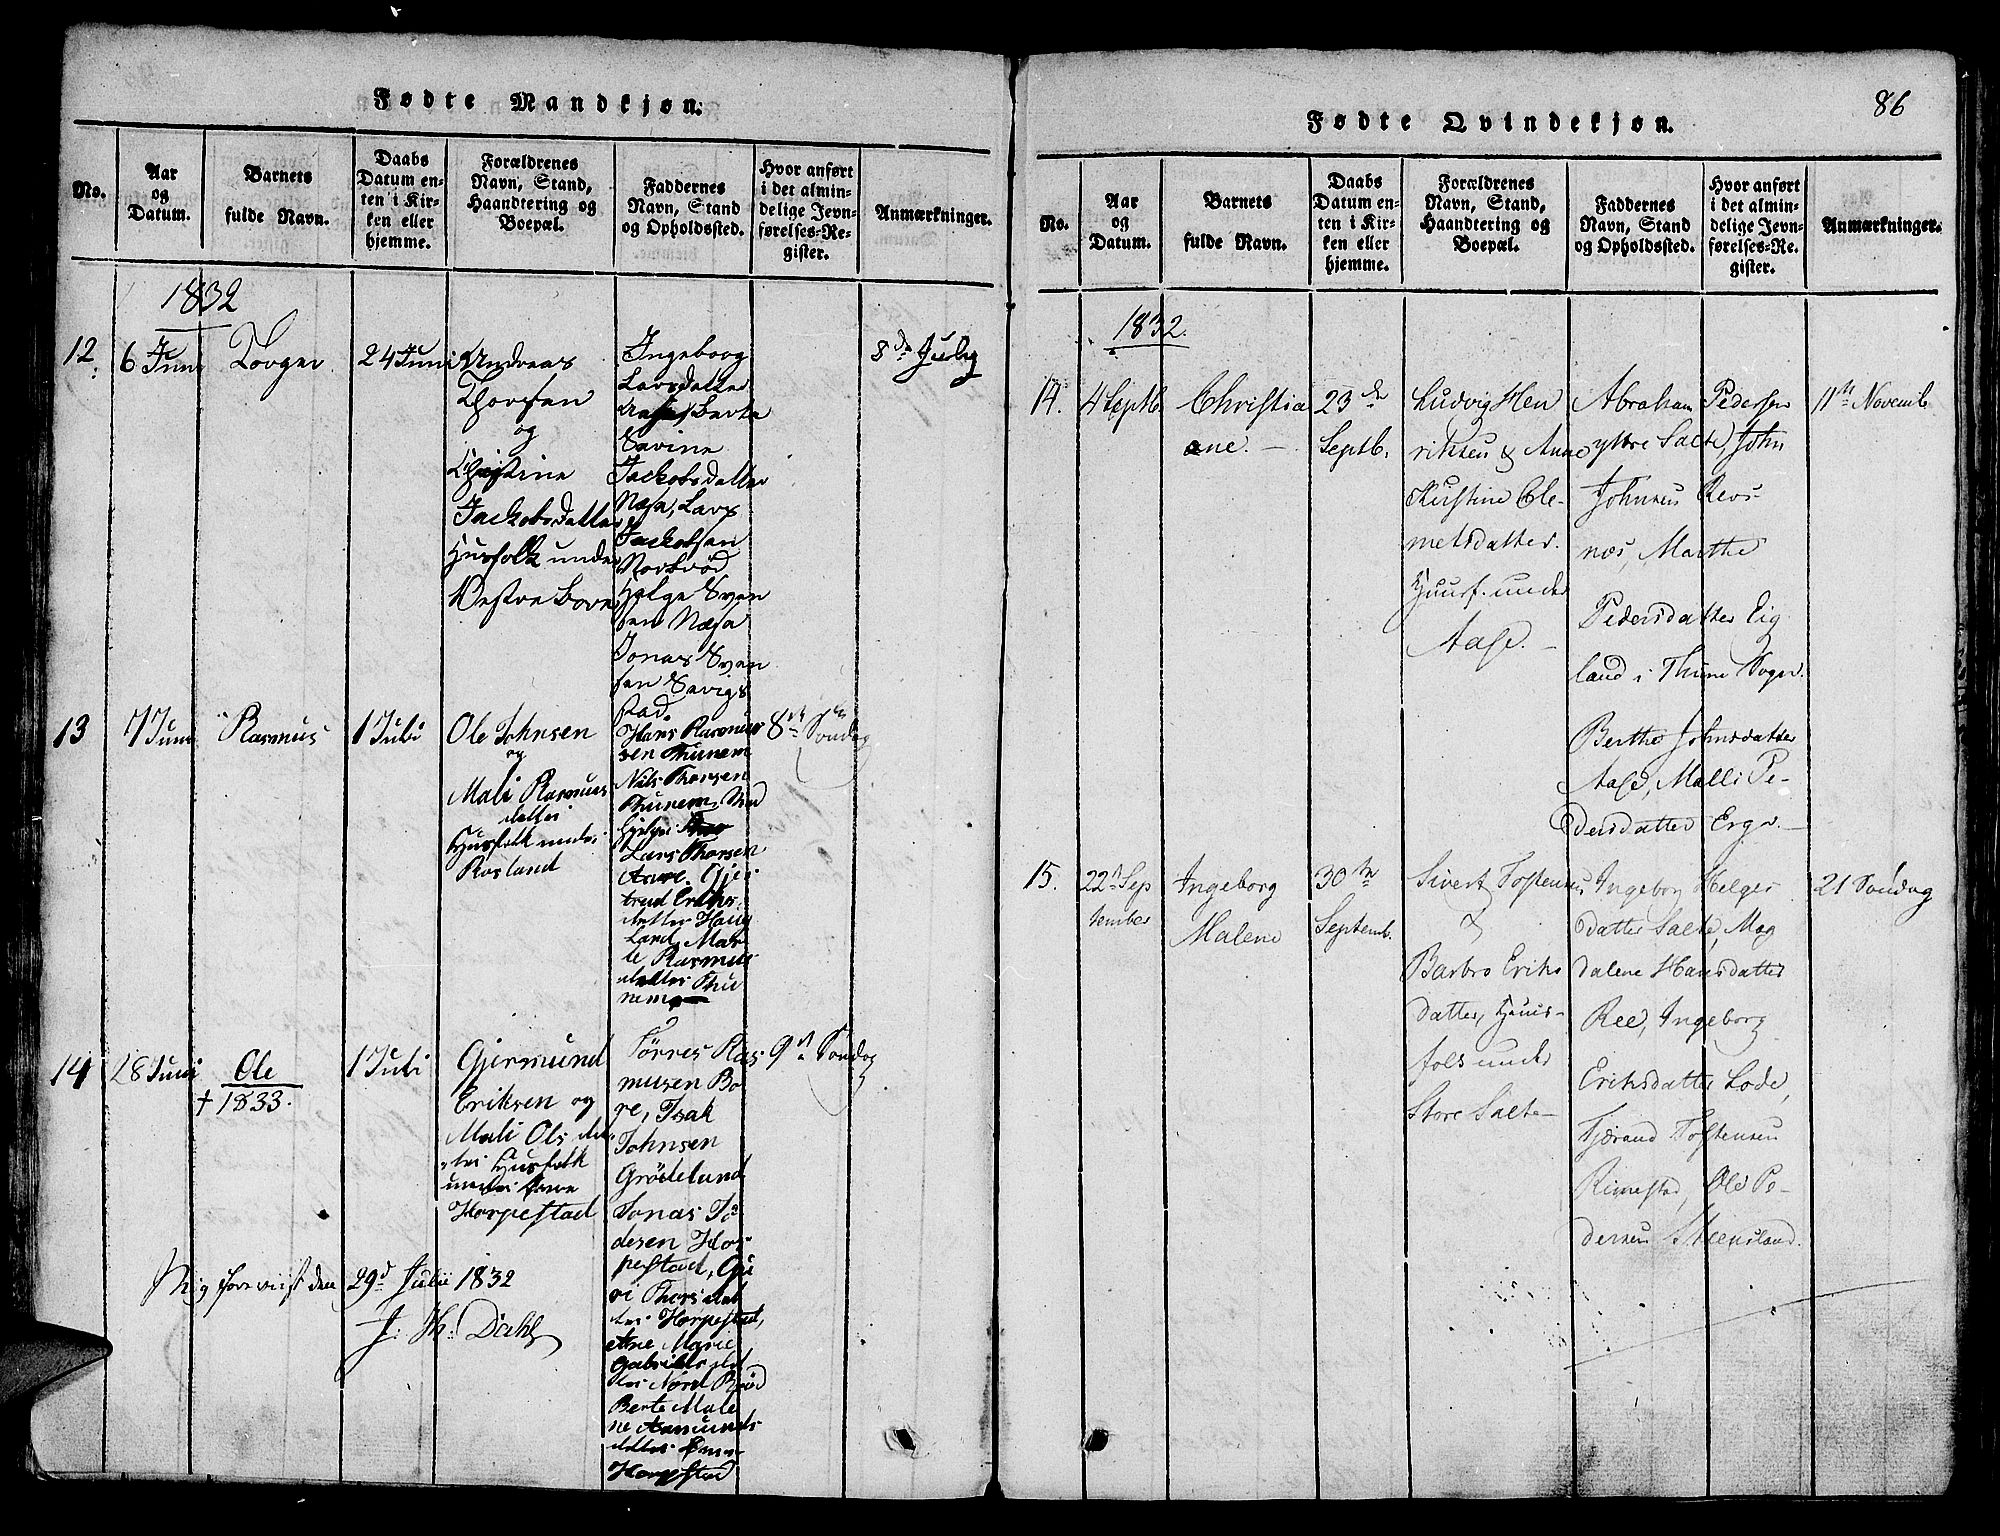 Fødte Mandkjøn.
No.
Aar
og
Datum.
Barnets
fulde Navn.
Daabs
Datum en-
ten i Kir-
ken eller
hjemme.
Forældrenes
Navn, Stand,
Haandtering og
Boepæl.
Faddernes
Navn, Stand
og Opholdssted.
Hvor anført
i det almin-
delige Jevn-
førelses-Re-
gister.
Anmærkninger.
1832
12
6 Juni
24 Juni
Andreas
Thorsen
og
Christine
Jackobsdatter
Husfolk under
Vestre Bore
Ingeborg
Larsdatter
Berte
Savine
Jackobsdatter
Næsa, Lars
Jackobsen
Nordbrød
Helge Sven
sen Næsa
Jonas Sven
sen
8de July
13
7 Juni
Rasmus
1 Juli
Ole Johnsen
og
Mali Rasmus
datter
Husfolk under
Rosland
Hans Rasmus
sen Thunem
Nils Thorsen
Thunem,
Lars Thorsen
Gjer
trud Eriks
datter Haug
Land, Mar
te Rasmus
datter Thu
nem
8de Søndag
14
28 Juni
Ole
† 1833.
1 Juli
Gjermund
Eriksen og
Mali Ols dat
ter Husfolk
under
Horpestad
Tørres Ras
musen Bo
re, Isak
Johnsen
Grödeland
Jonas To
desen Hor
pestad, Gu
ri Thors dat
ter Horpestad,
Ane Marie
Gabriels dat
ter Nord Brød
Berte Male
ne Aamunds
datter
Horpestad
9de Søndag
Mig foreviist den 29d Julii 1832
J. Th: Dahl
86
Fødte Qvindekjøn.
No.
Aar
og
Datum.
Barnets
fulde Navn.
Daabs
Datum en-
ten i Kir-
ken eller
hjemme.
Forældrenes
Navn, Stand,
Haandtering og
Boepæl.
Faddernes
Navn, Stand
og Opholdssted.
Hvor anført
i det almin-
delige Jevn-
førelses-Re-
gister.
Anmærkninger.
1832.
14.
4 Septb.
Christia
ane. –
23de
Septb.
Ludvig Hen
riksen & Anne
Kirstine Cle-
metsdatter.
Huusf. under
Aase. –
Abraham Pedersen
yttre Salte, John
Johnsen Revs-
næs, Marthe
Pedersdatter Eig
land i Thime Sogn.
Berthe Johnsdatter
Aase, Malli Pe-
dersdatter Erga. –
11te Novemb
15.
22d Sep
tember
Ingeborg
Malene
30te
Septemb.
Sivert Tostensen
&
Barbro Eriks
datter, Huus-
folk under
Store Salte –
Ingeborg Helges
datter Salte, Mag
dalene Hansdatter
Ree, Ingeborg
Eriksdatter Lode,
Tjærand Tostensen
Rimestad, Ole Pe-
dersen Steensland.
21 Søndag